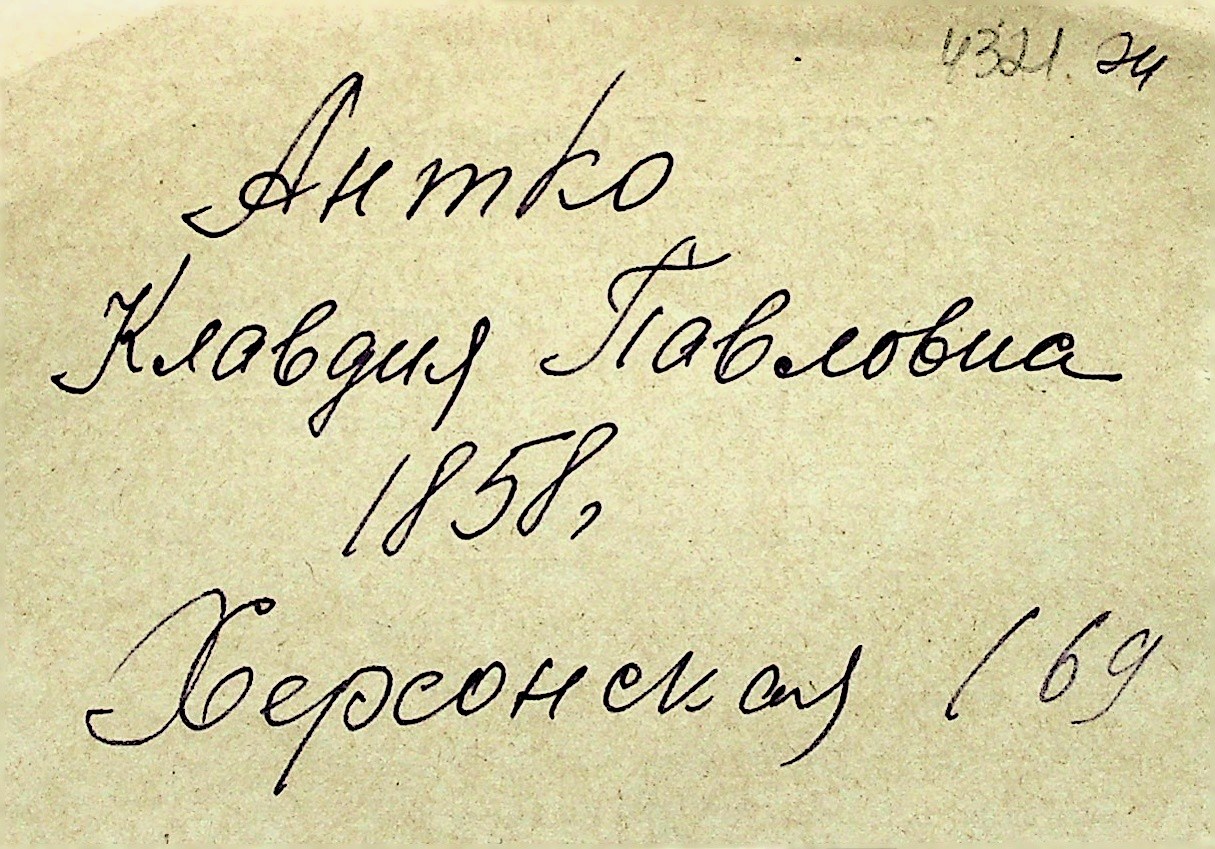 4321.
Антко
Клавдия Павловна
1858,
Херсонская 169